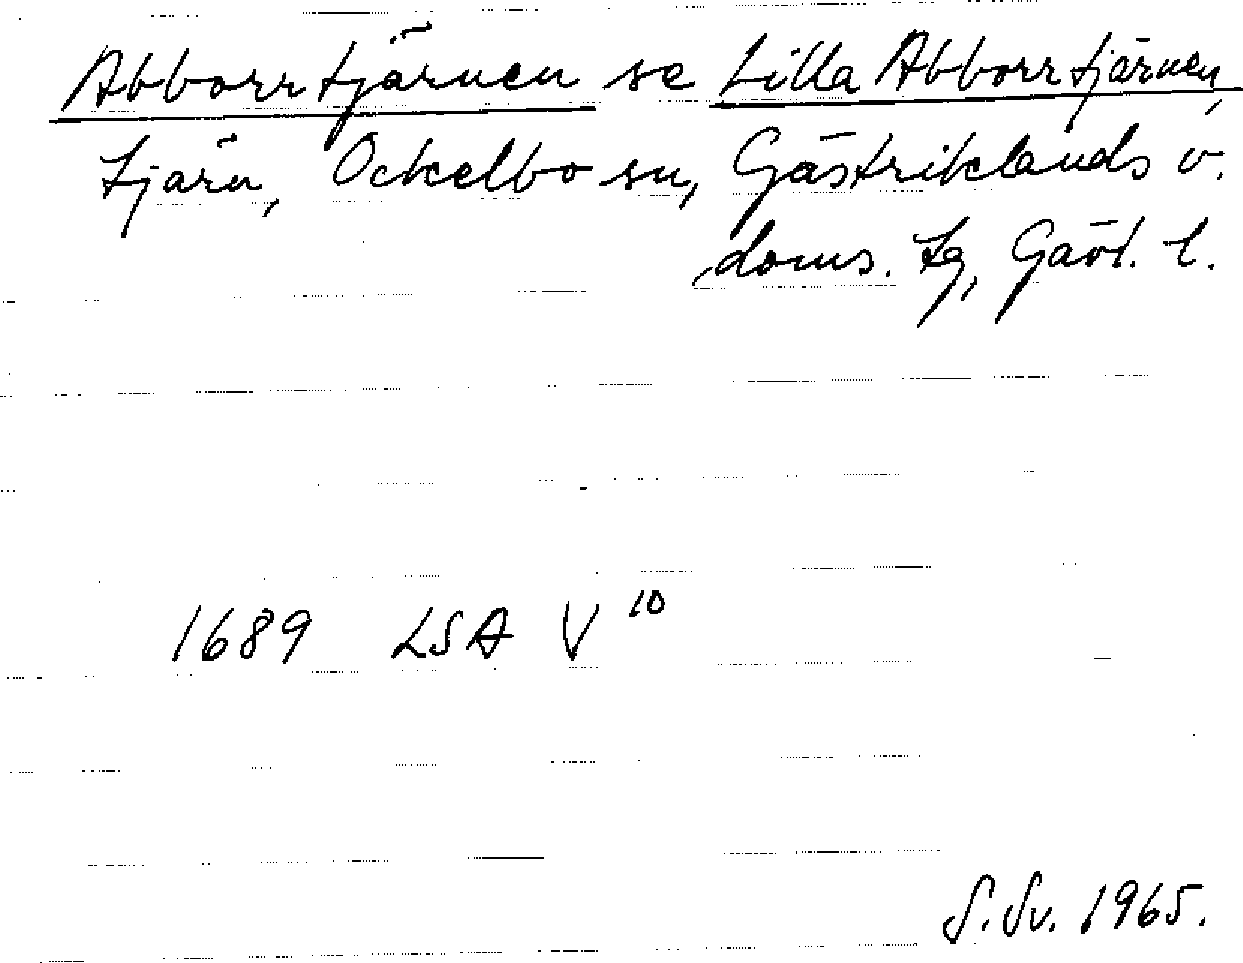 Abborrtjärnen se Lilla Abborrtjärnen,
tjärn, Ockelbo sn, Gästriklands v.
doms. tg, Gävl. l.
1689 LSA V 10
S. Sv. 1965.